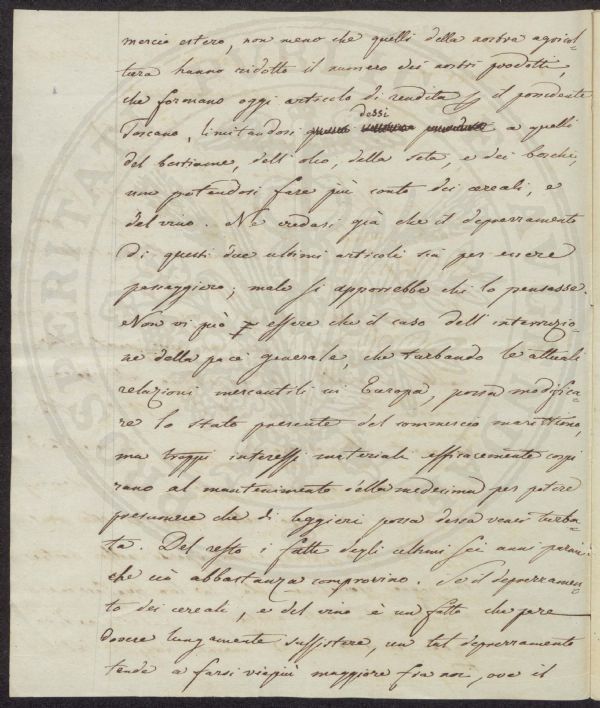 mercio estero, non meno che quelli della nostra agricol-
tura hanno ridotto il numero dei nostri prodotti,
che formano oggi articolo di rendita p il possidente
dessi
Toscano, limitandosi a quelli
del bestiame, dell'olio, della seta, e dei boschi,
non potendosi fare più conto dei cereali, e
del vino. Nè credasi già che il deprezzamento
di questi due ultimi articoli sia per essere
passaggiero; male si apporrebbe chi lo pensasse.
Non vi può essere che il caso dell'interruzio-
ne della pace generale, che turbando le attuali
relazioni mercantili in Europa, possa modifica-
re lo stato presente del commercio marittimo,
ma troppi interessi materiali efficacemente cospi
rano al mantenimento della medesima per potere
presumere che di leggieri possa dessa venir turba-
ta. Del resto i fatti degli ultimi sei anni
che ciò abbastanza comprovino. Se il deprezzamen-
to dei cereali, e del vino è un fatto che pare
dovere lungamente sussistere, un tal deprezzamento
tende a farsi viepiù maggiore fra noi, ove il
PROSPERITAS